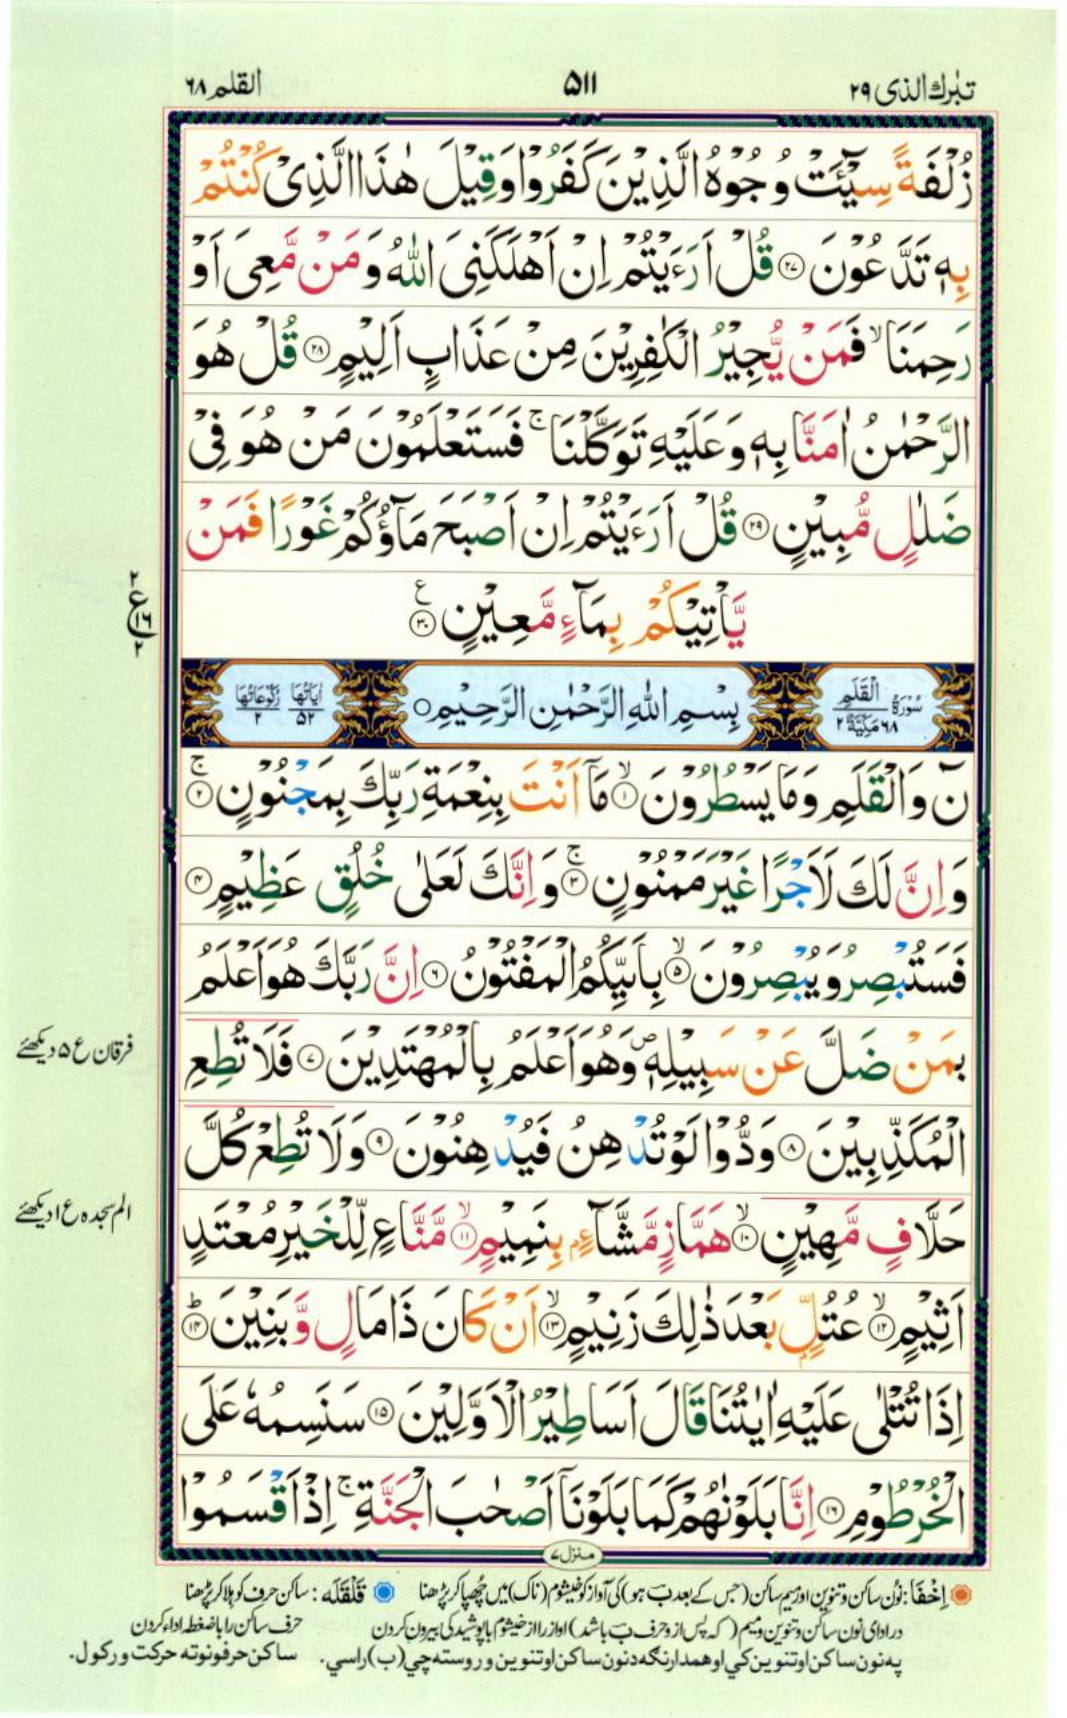 تبٰرك الذی ۲۹
۵۱۱
القلم ۶۸
زُلْفَةً سِیْٓـَٔتْ وُجُوْهُ الَّذِیْنَ كَفَرُوْا وَقِیْلَ هٰذَا الَّذِیْ كُنْتُمْ
بِهٖ تَدَّعُوْنَ ۲۷ قُلْ اَرَءَیْتُمْ اِنْ اَهْلَكَنِیَ اللّٰهُ وَمَنْ مَّعِیَ اَوْ
رَحِمَنَا ۙ فَمَنْ یُّجِیْرُ الْكٰفِرِیْنَ مِنْ عَذَابٍ اَلِیْمٍ ۲۸ قُلْ هُوَ
الرَّحْمٰنُ اٰمَنَّا بِهٖ وَعَلَیْهِ تَوَكَّلْنَا ۚ فَسَتَعْلَمُوْنَ مَنْ هُوَ فِیْ
ضَلٰلٍ مُّبِیْنٍ ۲۹ قُلْ اَرَءَیْتُمْ اِنْ اَصْبَحَ مَآؤُكُمْ غَوْرًا فَمَنْ
یَّاْتِیْكُمْ بِمَآءٍ مَّعِیْنٍ ۳۰ ع
۲
ع ۱۶
۲
سُوْرَةُ الْقَلَمِ ۶۸ مَكِّیَّةٌ ۲
بِسْمِ اللّٰهِ الرَّحْمٰنِ الرَّحِیْمِ
اٰیَاتُهَا ۵۲ رُكُوْعَاتُهَا ۲
نٓ وَالْقَلَمِ وَمَا یَسْطُرُوْنَ ۙ ۱ مَآ اَنْتَ بِنِعْمَةِ رَبِّكَ بِمَجْنُوْنٍ ۚ ۲
وَاِنَّ لَكَ لَاَجْرًا غَیْرَ مَمْنُوْنٍ ۚ ۳ وَاِنَّكَ لَعَلٰی خُلُقٍ عَظِیْمٍ ۴
فَسَتُبْصِرُ وَیُبْصِرُوْنَ ۙ ۵ بِاَیِّىكُمُ الْمَفْتُوْنُ ۶ اِنَّ رَبَّكَ هُوَ اَعْلَمُ
بِمَنْ ضَلَّ عَنْ سَبِیْلِهٖ ۪ وَهُوَ اَعْلَمُ بِالْمُهْتَدِیْنَ ۷ فَلَا تُطِعِ
فرقان ع ۵ دیکھئے
الْمُكَذِّبِیْنَ ۸ وَدُّوْا لَوْ تُدْهِنُ فَیُدْهِنُوْنَ ۹ وَلَا تُطِعْ كُلَّ
حَلَّافٍ مَّهِیْنٍ ۙ ۱۰ هَمَّازٍ مَّشَّآءٍۭ بِنَمِیْمٍ ۙ ۱۱ مَّنَّاعٍ لِّلْخَیْرِ مُعْتَدٍ
الم سجدہ ع ۱ دیکھئے
اَثِیْمٍ ۙ ۱۲ عُتُلٍّۭ بَعْدَ ذٰلِكَ زَنِیْمٍ ۙ ۱۳ اَنْ كَانَ ذَا مَالٍ وَّبَنِیْنَ ؕ ۱۴
اِذَا تُتْلٰی عَلَیْهِ اٰیٰتُنَا قَالَ اَسَاطِیْرُ الْاَوَّلِیْنَ ۱۵ سَنَسِمُهٗ عَلَی
الْخُرْطُوْمِ ۱۶ اِنَّا بَلَوْنٰهُمْ كَمَا بَلَوْنَآ اَصْحٰبَ الْجَنَّةِ ۚ اِذْ اَقْسَمُوْا
منزل ۷
اِخْفَا : نُون ساکن و تنوین اور میم ساکن (جس کے بعد بَ ہو) کی آواز کو خیشوم (ناک) میں چُھپا کر پڑھنا قَلْقَلَه : ساکن حرف کو ہلا کر پڑھنا
در ادای نون ساکن و تنوین و میم (که پس از و حرف بَ باشد) آواز را از خیشوم با پوشیدگی بیرون کردن حرف ساکن را با ضغطه اداء کردن
په نون ساکن او تنوین کي او همدارنګه د نون ساکن او تنوین و روسته چي (ب) راسي. ساکن حرفونو ته حرکت ورکول.